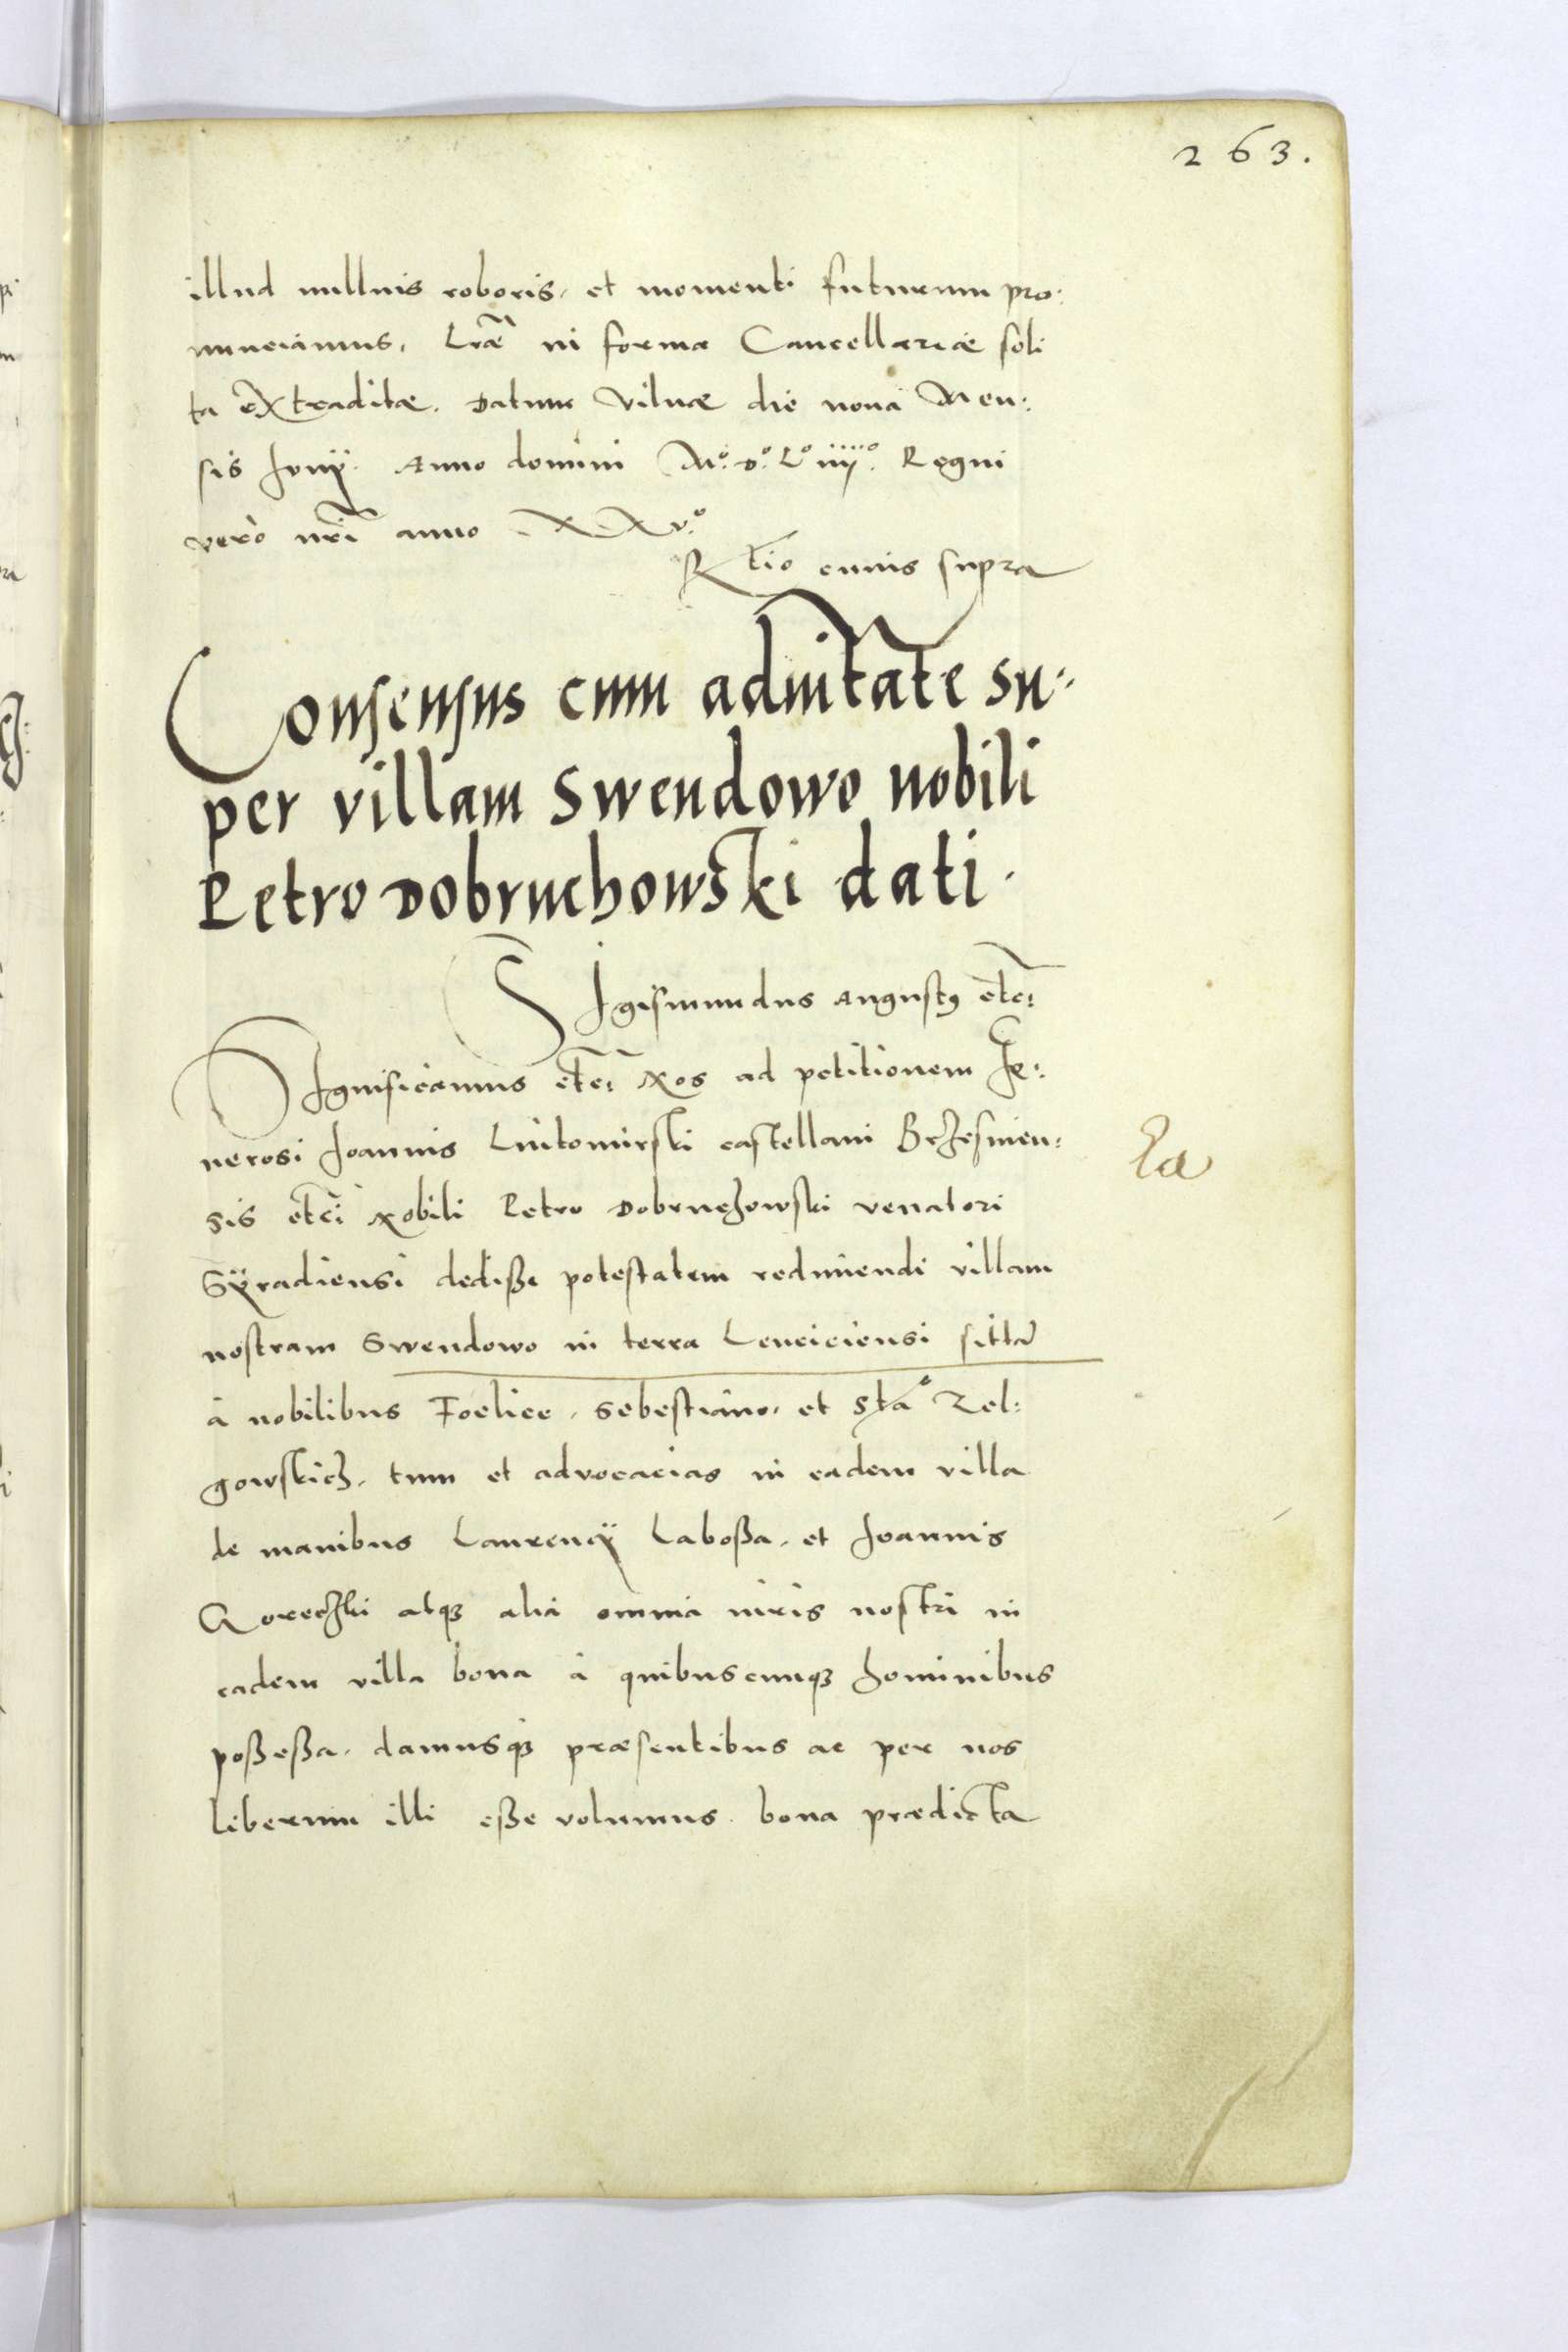 263.
illud nullius roboris, et momenti futurum pro:
nunciamus. Lrãe in forma Cancellariæ soli
ta extraditæ. Datum Vilnæ die nona Men:
sis Junÿ. Anno domini Mº. Dº. Lº iiijº. Regni
vero nrĩ anno XXvº.
Rtio cuius supra
Consensus cum aduitate su:
per villam Swendowo nobili
Petro Dobruchowski dati.
Sigismundus Augustꝰ etc:
Significamus etc: Nos ad petitionem Ge:
nerosi Joannis Lutomirski castellani Brzesinen:
sis etc: Nobili Petro Dobruchowski venatori
Sÿradiensi dediße potestatem redimendi villam
nostram Swendowo in terra Lenciciensi sittã
à nobilibus Foelice, Sebestiano, et Staº Zel:
gowskich, tum et advocacias in eadem villa
de manibus Laurencÿ Laboßa, et Joannis
Gorechki atqꝫ alia omnia iuris nostri in
eadem villa bona à quibuscunqꝫ hominibus
poßeßa, damusqꝫ præsentibus ac per nos
liberum illi eße volumus bona prædicta